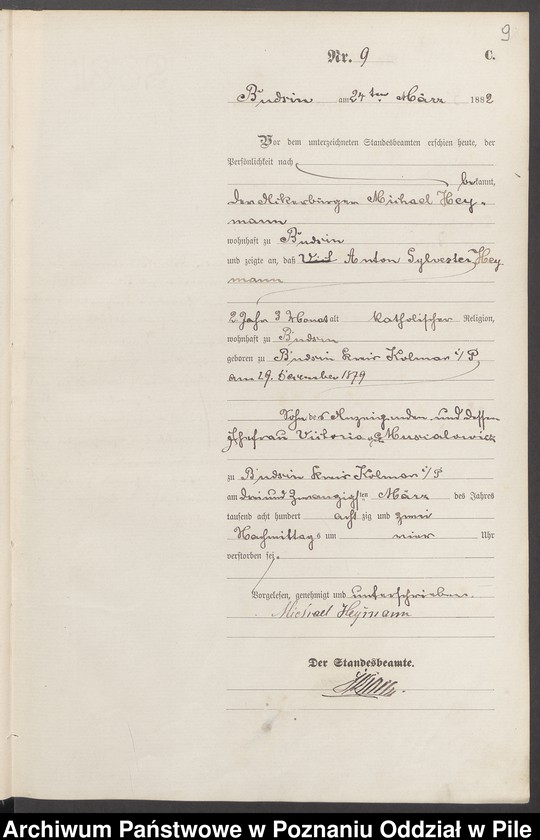 9
Nr. 9 C.
Budsin am 24ten März 1882
Vor dem unterzeichneten Standesbeamten erschien heute, der
Persönlichkeit nach
bekannt,
der Ackerbürger Michael Hey-
mann
wohnhaft zu Budsin
und zeigte an, daß Anton Sylvester Hey
mann
2 Jahr 3 Monat alt katholischer Religion,
wohnhaft zu Budsin
geboren zu Budsin Kreis Kolmar i/P
am 29. December 1879
Sohn des Anzeigenden und dessen
Ehefrau Victoria geb Musialowicz
zu Budsin Kreis Kolmar i/P
am drei und zwanzigsten März des Jahres
tausend acht hundert acht zig und zwei
Nachmittags um vier Uhr
verstorben sei.
Vorgelesen, genehmigt und unterschrieben.
Michael Heymann
Der Standesbeamte.
Archiwum Państwowe w Poznaniu Oddział w Pile